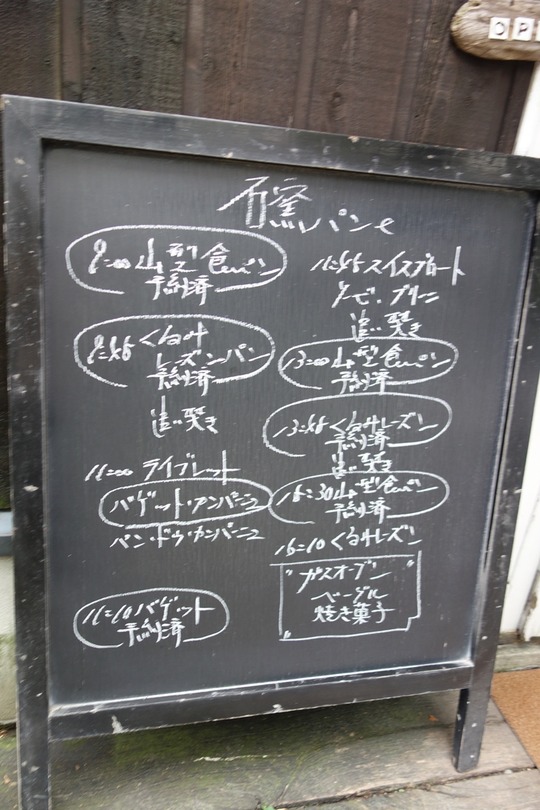 OP
石窯パン
8=00 山型食パン
予約済
8=45 くるみ
レーズンパン
予約済
追い焚き
11=00 ライブレット
バゲット・カンパーニュ
パン・ドゥ・カンパーニュ
11=10 バゲット
予約済
11=45 スイスブロート
追い焚き
13=00 山型食パン
予約済
13=45 くるみレーズン
予約済
追い焚き
15=30 山型食パン
予約済
16=10 くるみレーズン
"ガスオーブン"
ベーグル
焼き菓子